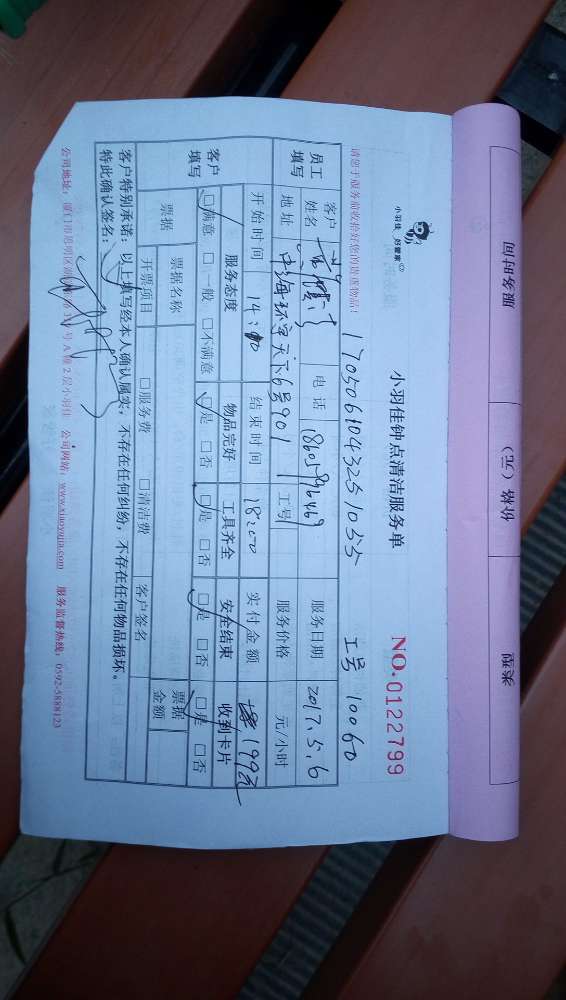 小羽佳 好管家
小羽佳钟点清洁服务单
NO.0122799
请您于服务前收拾好您的贵重物品!
1705061043251055 工号 10060
员工填写 客户姓名 电话 服务日期 2017.5.6
地址 中海环宇天下6号901 工号 服务价格 元/小时
开始时间 14:00 结束时间 18:00 实付金额 199元
客户填写 服务态度 物品完好 工具齐全 安全结束 收到卡片
□满意 □一般 □不满意 □是 □否 □是 □否 □是 □否 □是 □否
票据 票据名称 票据金额
开票项目 □服务费 □清洁费 客户签名
客户特别承诺:以上填写经本人确认属实,不存在任何纠纷,不存在任何物品损坏。
特此确认签名:
公司地址:厦门市思明区 号A幢2层小羽佳 公司网站:www.xiaoyujia.com 服务监督热线:0592-5888123
服务时间
价格(元)